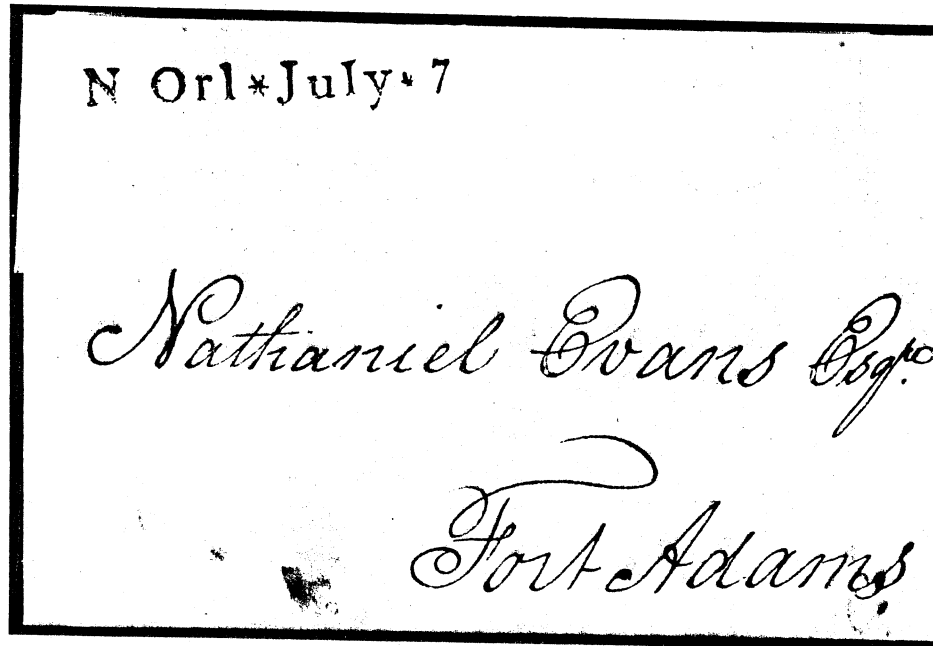 N Orl*July*7
Nathaniel Evans Esqre.
Fort Adams.